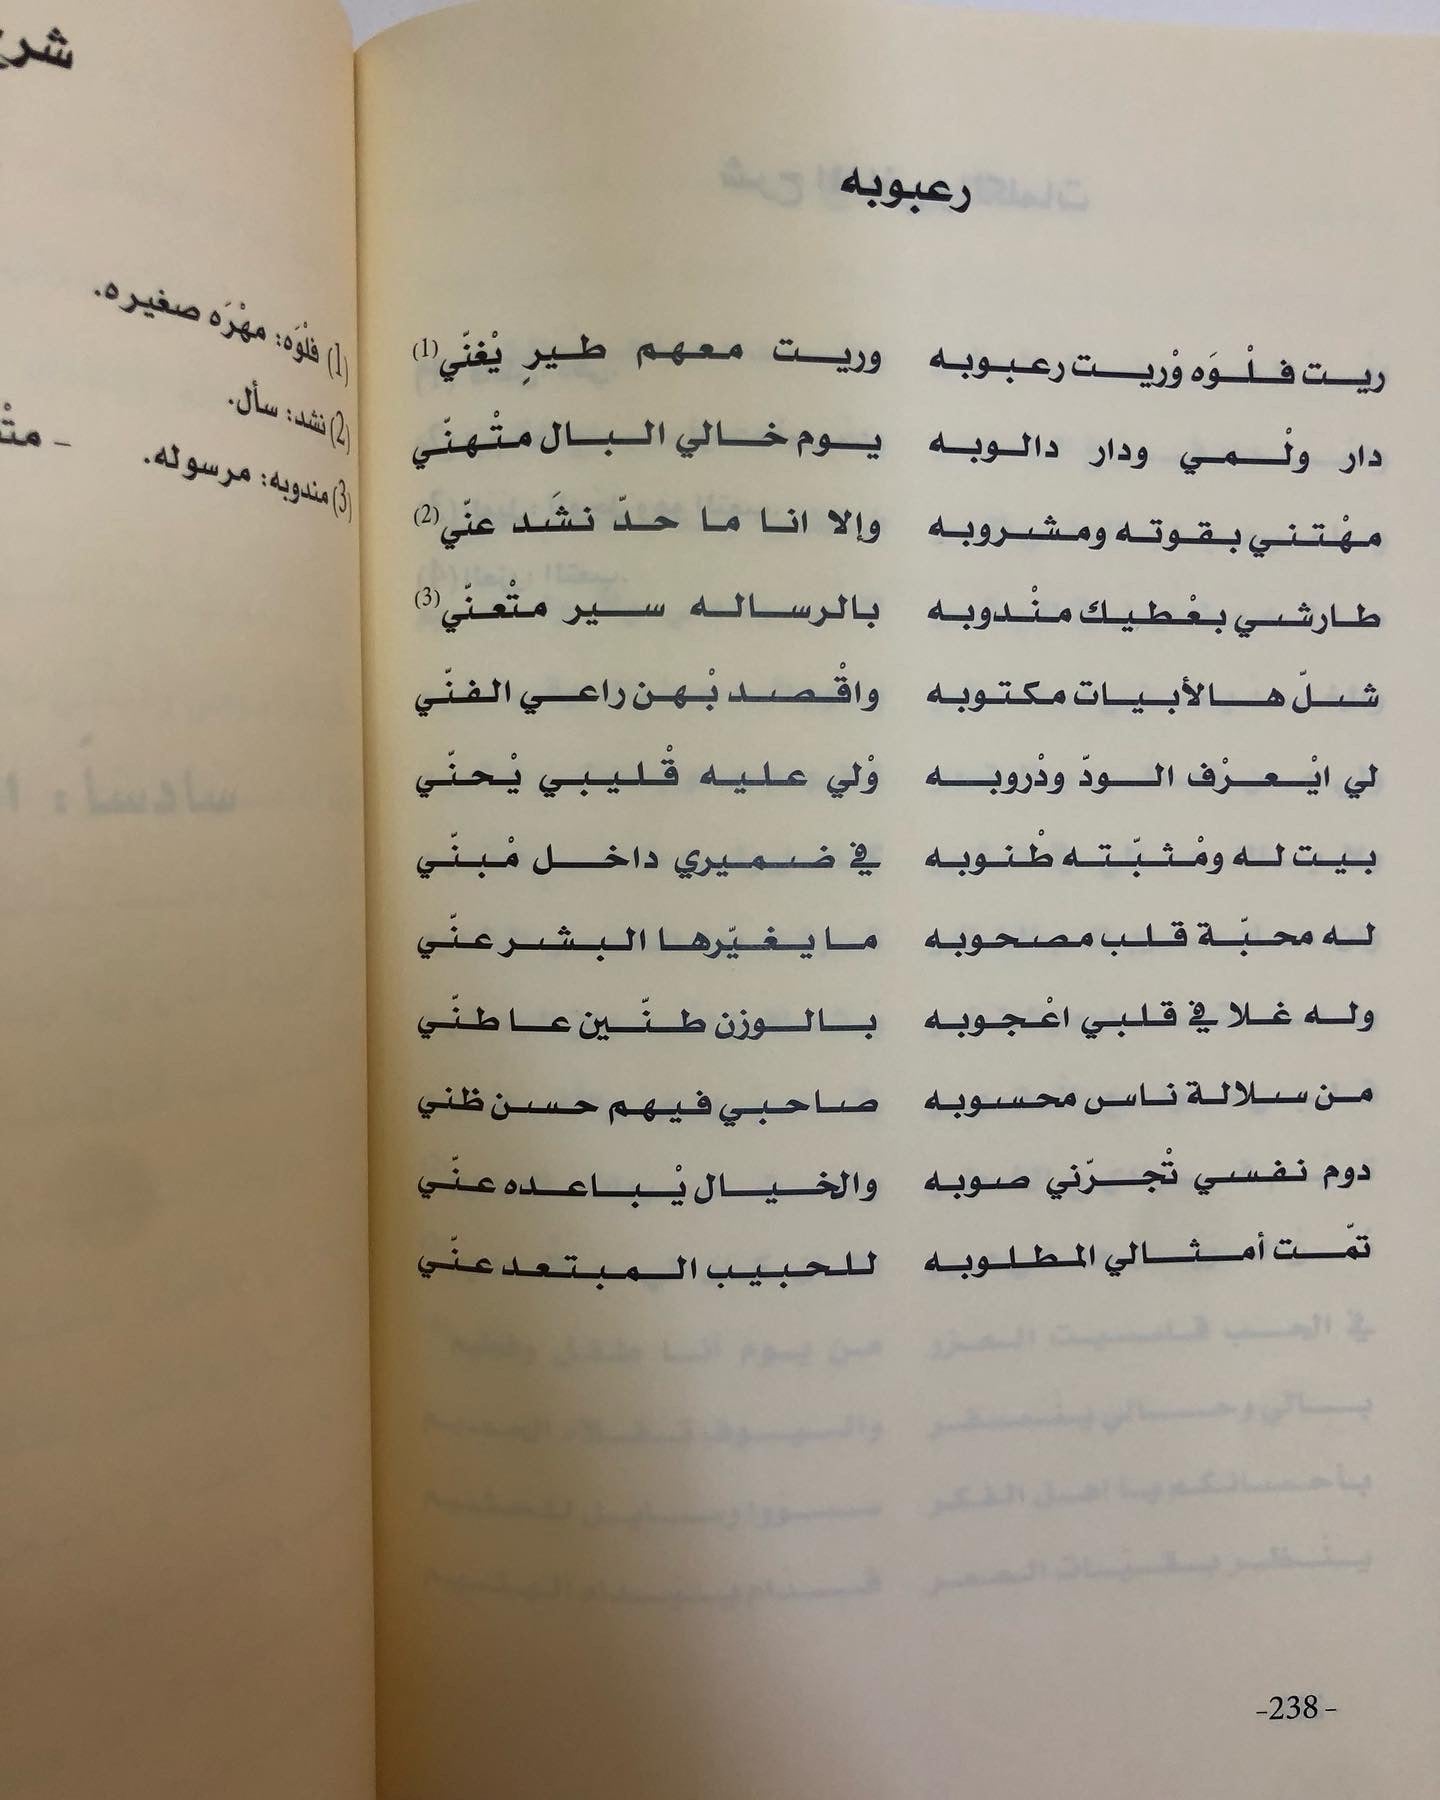 رعبوبه
ريت فلْوَه وْريت رعبوبه وريت معهم طيرٍ يْغنّي(1)
دار ولْمي ودار دالوبه يوم خالي البال متْهنّي
مهْتني بقوته ومشروبه وإلا انا ما حدّ نشَد عنّي(2)
طارشي بعْطيك منْدوبه بالرساله سير متْعنّي(3)
شلّ هالأبيات مكتوبه واقْصد بْهن راعي الفنّي
لي ايْعرْف الودّ ودْروبه وْلي عليه قْليبي يْحنّي
بيت له ومْثبّته طْنوبه في ضميري داخل مْبنّي
له محبّة قلب مصحوبه ما يغيّرها البشر عنّي
وله غلا في قلبي اعْجوبه بالوزن طنّين عا طنّي
من سلالة ناس محسوبه صاحبي فيهم حسن ظني
دوم نفسي تْجرّني صوبه والخيال يْباعده عنّي
تمّت أمثالي المطلوبه للحبيب المبتعد عنّي
-238-
شرح
(1) فلْوَه: مهْرَه صغيره.
(2) نشد: سأل.
(3) مندوبه: مرسوله. -